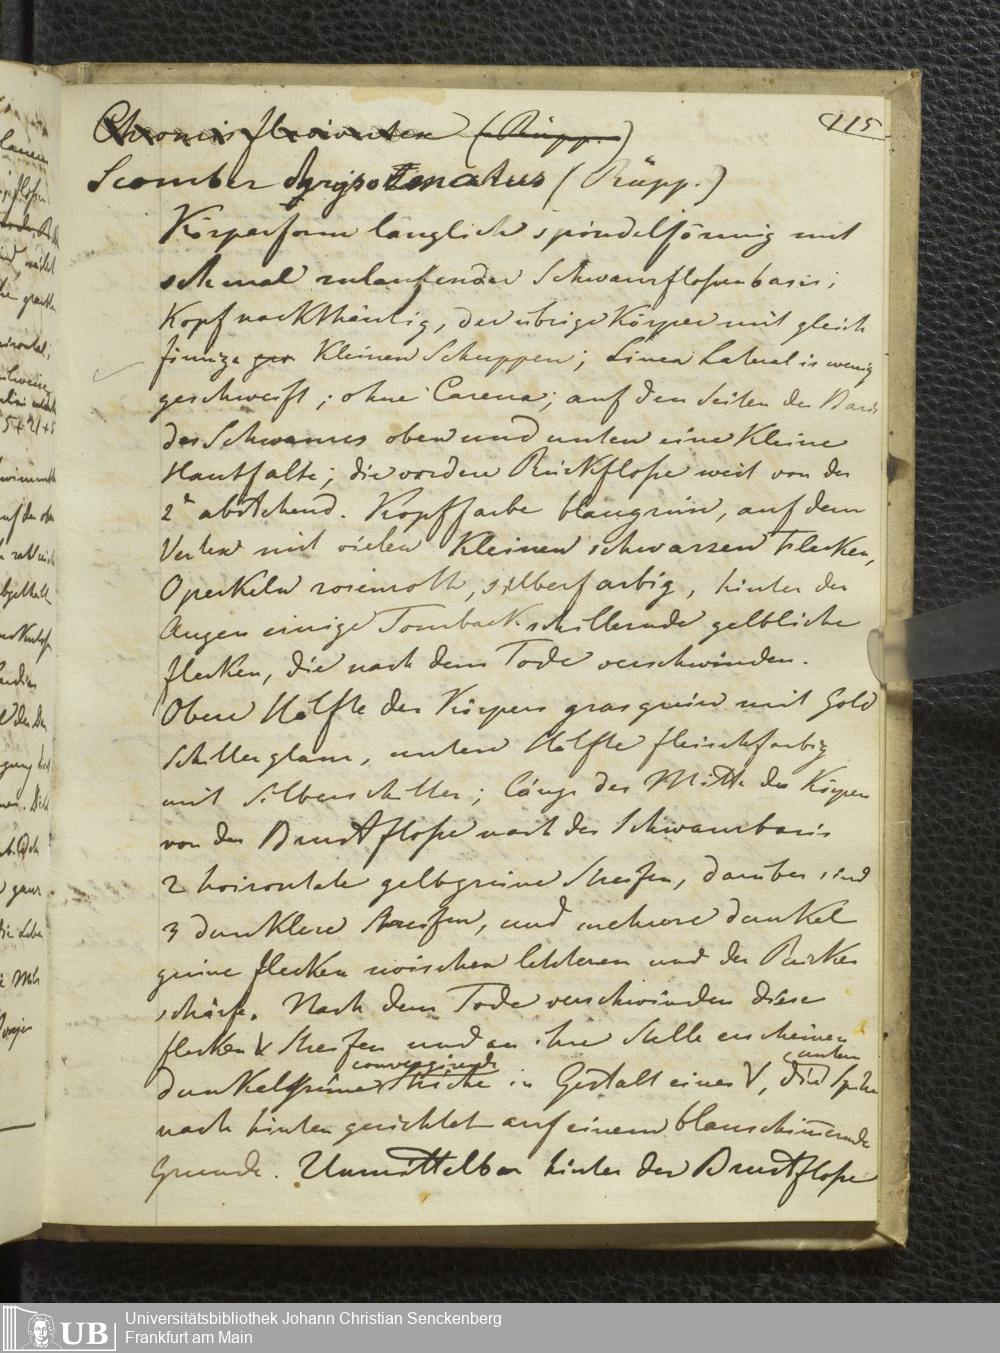 115
Chromis flavivertex (Rüpp.)
Scomber chrysozonatus (Rüpp.)
Körperform länglich spindelförmig mit
schmal zulaufender Schwanzfloßenbasis;
Kopf nackthäutig, der übrige Körper mit gleich
förmige gro kleinen Schuppen; Linea Lateralis wenig
geschweift; ohne Carena; auf den Seiten der Basis
des Schwanzes oben und unten eine kleine
Hautfalte; die vordere Rückfloße weit von der
2n abstehend. Kopffarbe blaugrün, auf dem
Vertex mit vielen kleinen schwarzen Flecken,
Operkeln rosenroth, silberfarbig, hinter den
Augen einige Tomback schillernde gelbliche
flecken, die nach dem Tode verschwinden.
Obere Hälfte des Körpers grasgrün mit Gold
Schillerglanz, untere Hälfte fleischfarbig
mit Silberschiller; längs der Mitte des Körpers
von der Brustfloße nach der Schwanzbasis
2 horizontale gelbgrüne Streifen, darüber sind
3 dunklere Streifen, und mehrere dunkel
grüne flecken zwischen letzteren und der Rücken
schärfe. Nach dem Tode verschwinden diese
flecken & Streifen und an ihre Stelle erscheinen
convergirende unten
dunkelgrüne Striche in Gestalt eines V, die Spitze
nach hinten gerichtet auf einem blauschimernde
Grunde. Unmittelbar hinter der Brustfloße
Universitätsbibliothek Johann Christian Senckenberg
Frankfurt am Main
UB